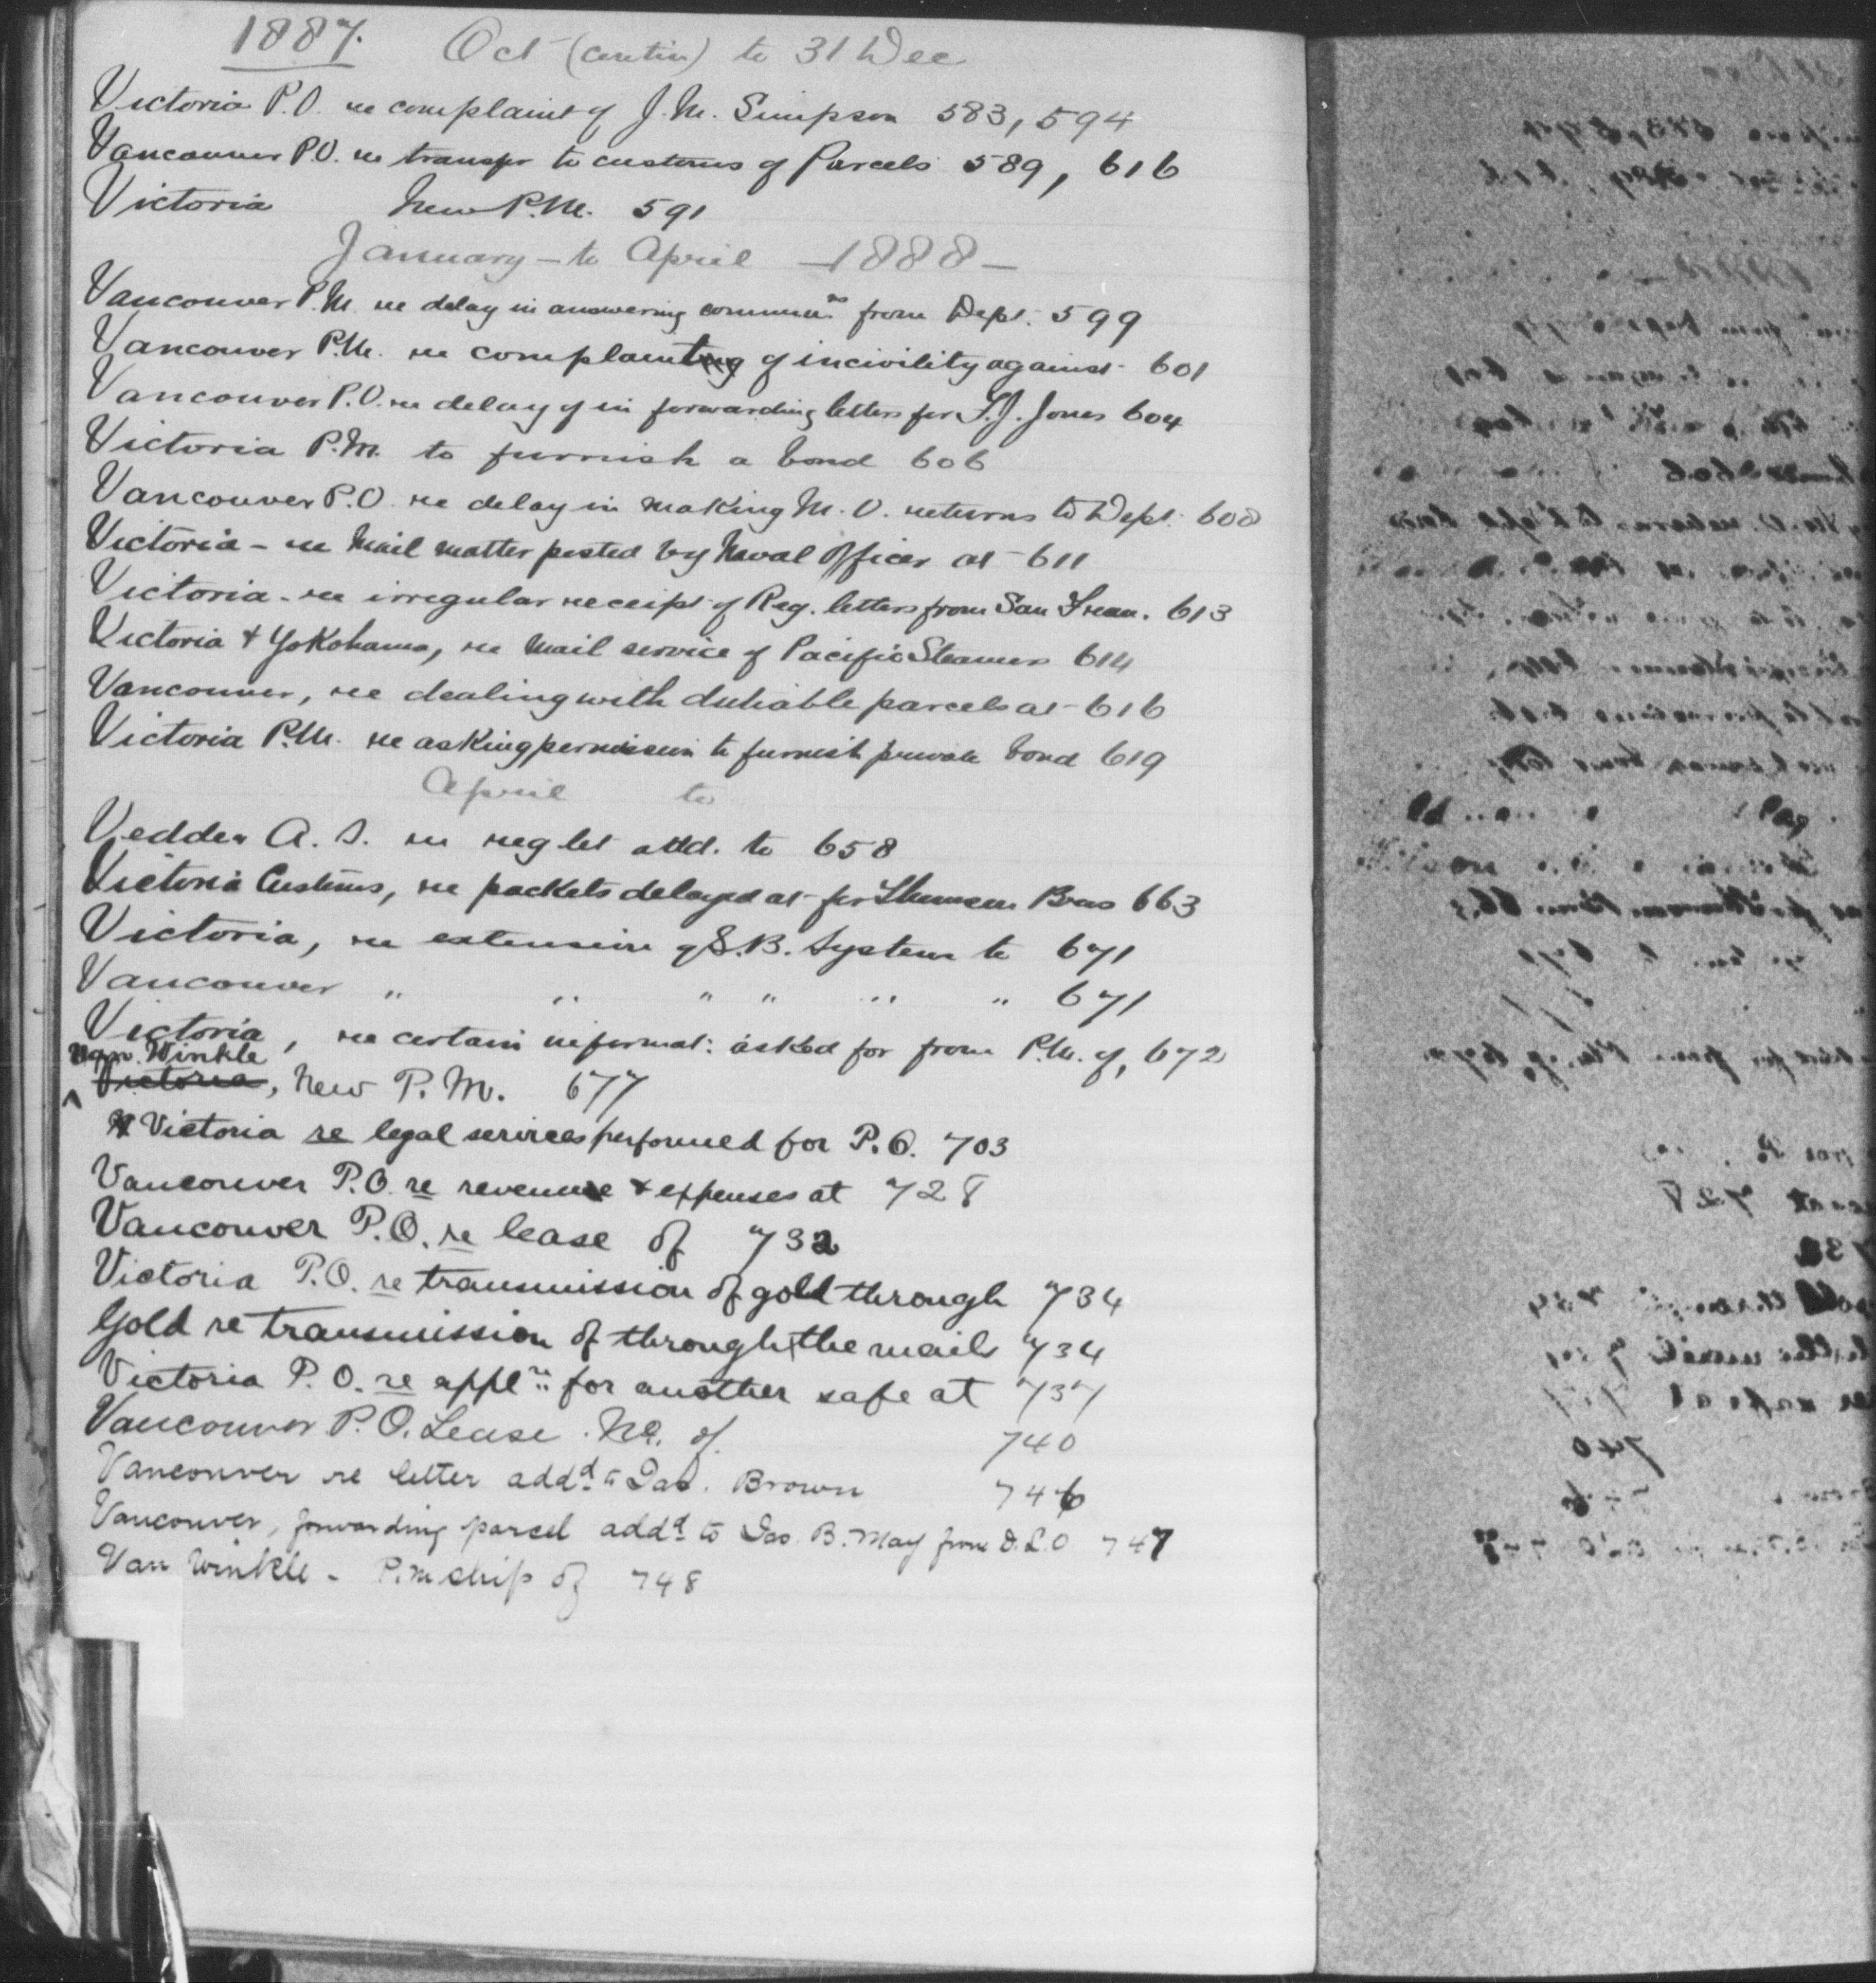 1887. Oct (contin) to 31 Dec
Victoria P.O. re complaint of J.M. Simpson 583, 594
Vancouver P.O. re transfr to customs of Parcels 589, 616
Victoria New P.M. 591
January - to April - 1888 -
Vancouver P.M. re delay in answering communns from Dept. 599
Vancouver P.M. re complaint of incivility against 601
Vancouver P.O. re delay of in forwarding letters for S.J. Jones 604
Victoria P.M. to furnish a bond 606
Vancouver P.O. re delay in making M.O. returns to Dept. 608
Victoria - re Mail matter posted by Naval Officer at 611
Victoria - re irregular receipt of Reg. letters from San Fran. 613
Victoria & Yokohama, re Mail service of Pacific Steamers 614
Vancouver, re dealing with dutiable parcels at 616
Victoria P.M. re asking permission to furnish private bond 619
April to
Vedder A.S. re reg let add. to 658
Victoria Customs, re packets delayed at for Bros 663
Victoria, re extension of S.B. System to 671
Vancouver " " " " " " 671
Victoria, re certain informat: asked for from P.M. of, 672
Van Winkle
^ Victoria, New P.M. 677
Victoria re legal services performed for P.O. 703
Vancouver P.O. re revenue & expenses at 728
Vancouver P.O. re lease of 732
Victoria P.O. re transmission of gold through 734
Gold re transmission of through the mails 734
Victoria P.O. re appln for another safe at 737
Vancouver P.O. Lease. re. of. 740
Vancouver re letter addd to Jas. Brown 746
Vancouver, forwarding parcel addd to Jas. B. May from D.L.O 747
Van Winkle - P.mship of 748